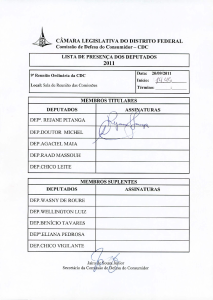 CÂMARA LEGISLATIVA DO DISTRITO FEDERAL
Comissão de Defesa do Consumidor – CDC
LISTA DE PRESENÇA DOS DEPUTADOS
2011
9ª Reunião Ordinária da CDC
Data: 20/09/2011
Início:
Local: Sala de Reunião das Comissões
Término:
MEMBROS TITULARES
DEPUTADOS ASSINATURAS
DEPª. REJANE PITANGA
DEP.DOUTOR MICHEL
DEP.AGACIEL MAIA
DEP.RAAD MASSOUH
DEP.CHICO LEITE
MEMBROS SUPLENTES
DEPUTADOS ASSINATURAS
DEP.WASNY DE ROURE
DEP.WELLINGTON LUIZ
DEP.BENÍCIO TAVARES
DEPª.ELIANA PEDROSA
DEP.CHICO VIGILANTE
Secretário da Comissão de Defesa do Consumidor